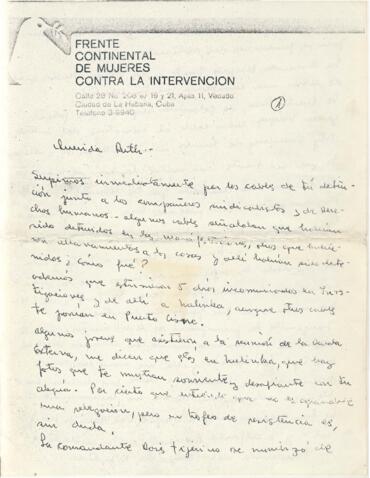 FRENTE
CONTINENTAL
DE MUJERES
CONTRA LA INTERVENCION
Calle 28 No. 206 e/ 19 y 21, Apto 11, Vedado
Ciudad de La Habana, Cuba
Teléfono 3-6940
1
Querida Ruth:
Supimos inmediatamente por los cables de tu deten-
ción junto a los compañeros sindicalistas y de dere-
chos humanos - algunos cables señalaban que habían
sido detenidos en las manifestaciones, otros que hubie-
ron allanamientos a las casas y allí habían sido dete-
nidos; ¿cómo fué?
que estuvieron 5 días incomunicados en Inves-
tigaciones y de allí a Malinka, aunque otros cables
te ponían en Punto Cisne.
Algunos que asistieron a la reunión de la Deuda
Externa, me dicen que en Malinka, que hay
fotos que te muestran sonriente y desafiante con tu
alegría. Por cierto que no es agradable
una relegación, pero un trofeo de resistencia es,
sin duda.
La comandante Doris Tijerino se de